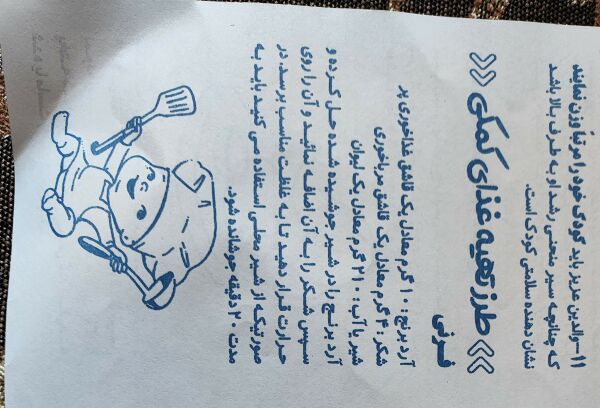 ۱۱-والدین عزیز باید کودک خود را مرتباً وزن نمایند
که چنانچه سیر منحنی رشد او به طرف بالا باشد
نشان دهنده سلامتی کودک است.
«طرز تهیه غذای کمکی»
فرنی
آرد برنج: ۱۰ گرم معادل یک قاشق غذاخوری پر
شکر: ۴ گرم معادل یک قاشق مرباخوری
شیر یا آب: ۲۱۰ گرم معادل یک لیوان
آرد برنج را در شیر جوشیده شده حل کرده و
سپس شکر را به آن اضافه نمائید و آن را روی
حرارت قرار دهید تا به غلظت مناسب برسد. در
صورتیکه از شیر محلی استفاده می کنید باید به
مدت ۲۰ دقیقه جوشانده شود.